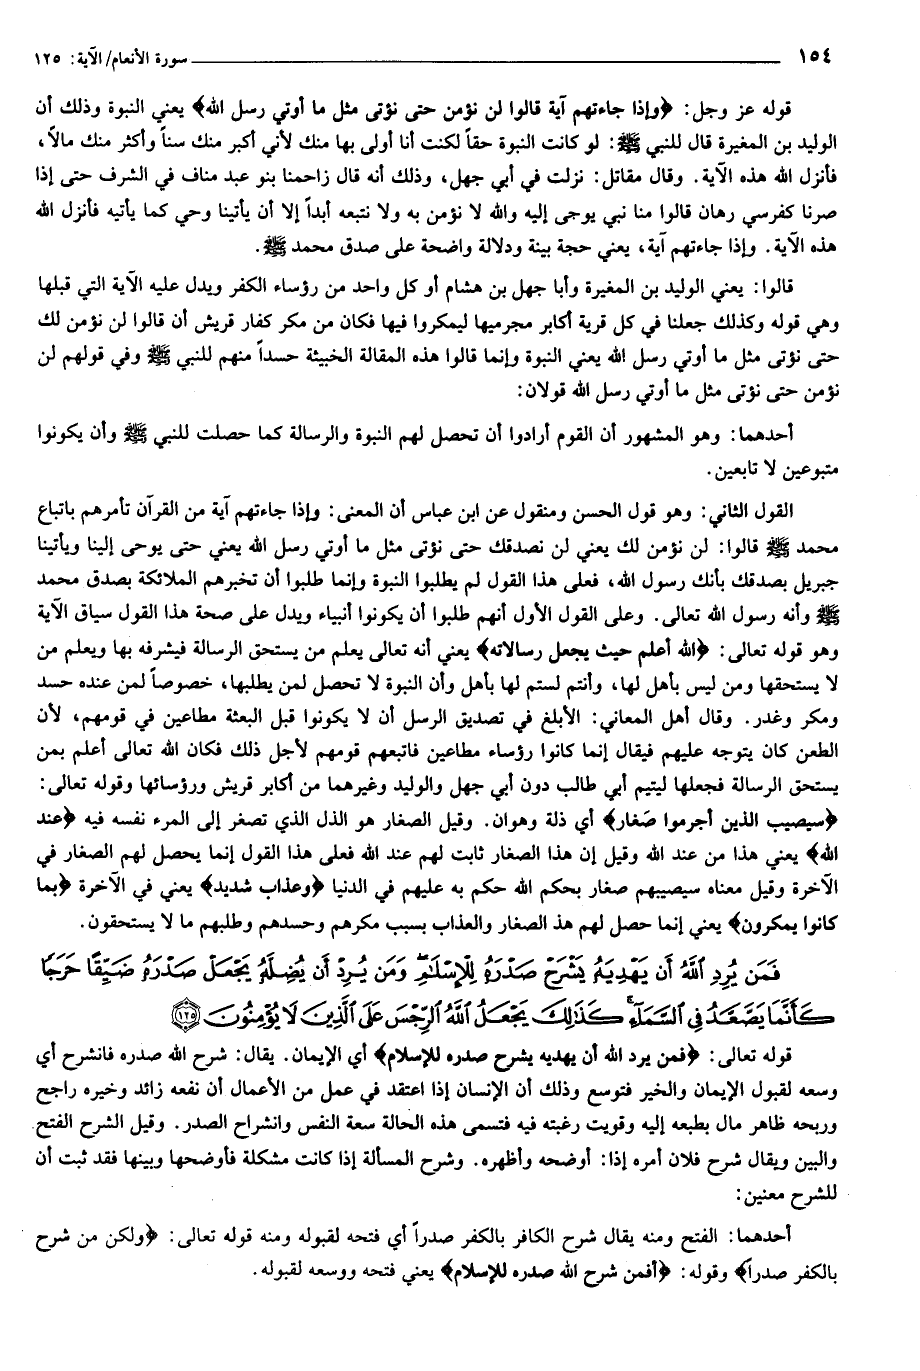 ١٥٤ سورة الأنعام/ الآية: ١٢٥
قوله عز وجل: ﴿وإذا جاءتهم آية قالوا لن نؤمن حتى نؤتى مثل ما أوتي رسل الله﴾ يعني النبوة وذلك أن
الوليد بن المغيرة قال للنبي ﷺ: لو كانت النبوة حقاً لكنت أنا أولى بها منك لأني أكبر منك سناً وأكثر منك مالاً،
فأنزل الله هذه الآية. وقال مقاتل: نزلت في أبي جهل، وذلك أنه قال زاحمنا بنو عبد مناف في الشرف حتى إذا
صرنا كفرسي رهان قالوا منا نبي يوحى إليه والله لا نؤمن به ولا نتبعه أبداً إلا أن يأتينا وحي كما يأتيه فأنزل الله
هذه الآية. وإذا جاءتهم آية، يعني حجة بينة ودلالة واضحة على صدق محمد ﷺ.
قالوا: يعني الوليد بن المغيرة وأبا جهل بن هشام أو كل واحد من رؤساء الكفر ويدل عليه الآية التي قبلها
وهي قوله وكذلك جعلنا في كل قرية أكابر مجرميها ليمكروا فيها فكان من مكر كفار قريش أن قالوا لن نؤمن لك
حتى نؤتى مثل ما أوتي رسل الله يعني النبوة وإنما قالوا هذه المقالة الخبيثة حسداً منهم للنبي ﷺ وفي قولهم لن
نؤمن حتى نؤتى مثل ما أوتي رسل الله قولان:
أحدهما: وهو المشهور أن القوم أرادوا أن تحصل لهم النبوة والرسالة كما حصلت للنبي ﷺ وأن يكونوا
متبوعين لا تابعين.
القول الثاني: وهو قول الحسن ومنقول عن ابن عباس أن المعنى: وإذا جاءتهم آية من القرآن تأمرهم باتباع
محمد ﷺ قالوا: لن نؤمن لك يعني لن نصدقك حتى نؤتى مثل ما أوتي رسل الله يعني حتى يوحى إلينا ويأتينا
جبريل بصدقك بأنك رسول الله، فعلى هذا القول لم يطلبوا النبوة وإنما طلبوا أن تخبرهم الملائكة بصدق محمد
ﷺ وأنه رسول الله تعالى. وعلى القول الأول أنهم طلبوا أن يكونوا أنبياء ويدل على صحة هذا القول سياق الآية
وهو قوله تعالى: ﴿الله أعلم حيث يجعل رسالاته﴾ يعني أنه تعالى يعلم من يستحق الرسالة فيشرفه بها ويعلم من
لا يستحقها ومن ليس بأهل لها، وأنتم لستم لها بأهل وأن النبوة لا تحصل لمن يطلبها، خصوصاً لمن عنده حسد
ومكر وغدر. وقال أهل المعاني: الأبلغ في تصديق الرسل أن لا يكونوا قبل البعثة مطاعين في قومهم، لأن
الطعن كان يتوجه عليهم فيقال إنما كانوا رؤساء مطاعين فاتبعهم قومهم لأجل ذلك فكان الله تعالى أعلم بمن
يستحق الرسالة فجعلها ليتيم أبي طالب دون أبي جهل والوليد وغيرهما من أكابر قريش ورؤسائها وقوله تعالى:
﴿سيصيب الذين أجرموا صَغار﴾ أي ذلة وهوان. وقيل الصغار هو الذل الذي تصغر إلى المرء نفسه فيه ﴿عند
الله﴾ يعني هذا من عند الله وقيل إن هذا الصغار ثابت لهم عند الله فعلى هذا القول إنما يحصل لهم الصغار في
الآخرة وقيل معناه سيصيبهم صغار بحكم الله حكم به عليهم في الدنيا ﴿وعذاب شديد﴾ يعني في الآخرة ﴿بما
كانوا يمكرون﴾ يعني إنما حصل لهم هذ الصغار والعذاب بسبب مكرهم وحسدهم وطلبهم ما لا يستحقون.
فَمَن يُرِدِ ٱللَّهُ أَن يَهْدِيَهُۥ يَشْرَحْ صَدْرَهُۥ لِلْإِسْلَٰمِ ۖ وَمَن يُرِدْ أَن يُضِلَّهُۥ يَجْعَلْ صَدْرَهُۥ ضَيِّقًا حَرَجًا
كَأَنَّمَا يَصَّعَّدُ فِي ٱلسَّمَآءِ ۚ كَذَٰلِكَ يَجْعَلُ ٱللَّهُ ٱلرِّجْسَ عَلَى ٱلَّذِينَ لَا يُؤْمِنُونَ ﴿١٢٥﴾
قوله تعالى: ﴿فمن يرد الله أن يهديه يشرح صدره للإسلام﴾ أي الإيمان. يقال: شرح الله صدره فانشرح أي
وسعه لقبول الإيمان والخير فتوسع وذلك أن الإنسان إذا اعتقد في عمل من الأعمال أن نفعه زائد وخيره راجح
وربحه ظاهر مال بطبعه إليه وقويت رغبته فيه فتسمى هذه الحالة سعة النفس وانشراح الصدر. وقيل الشرح الفتح
والبين ويقال شرح فلان أمره إذا: أوضحه وأظهره. وشرح المسألة إذا كانت مشكلة فأوضحها وبينها فقد ثبت أن
للشرح معنين:
أحدهما: الفتح ومنه يقال شرح الكافر بالكفر صدراً أي فتحه لقبوله ومنه قوله تعالى: ﴿ولكن من شرح
بالكفر صدراً﴾ وقوله: ﴿أفمن شرح الله صدره للإسلام﴾ يعني فتحه ووسعه لقبوله.